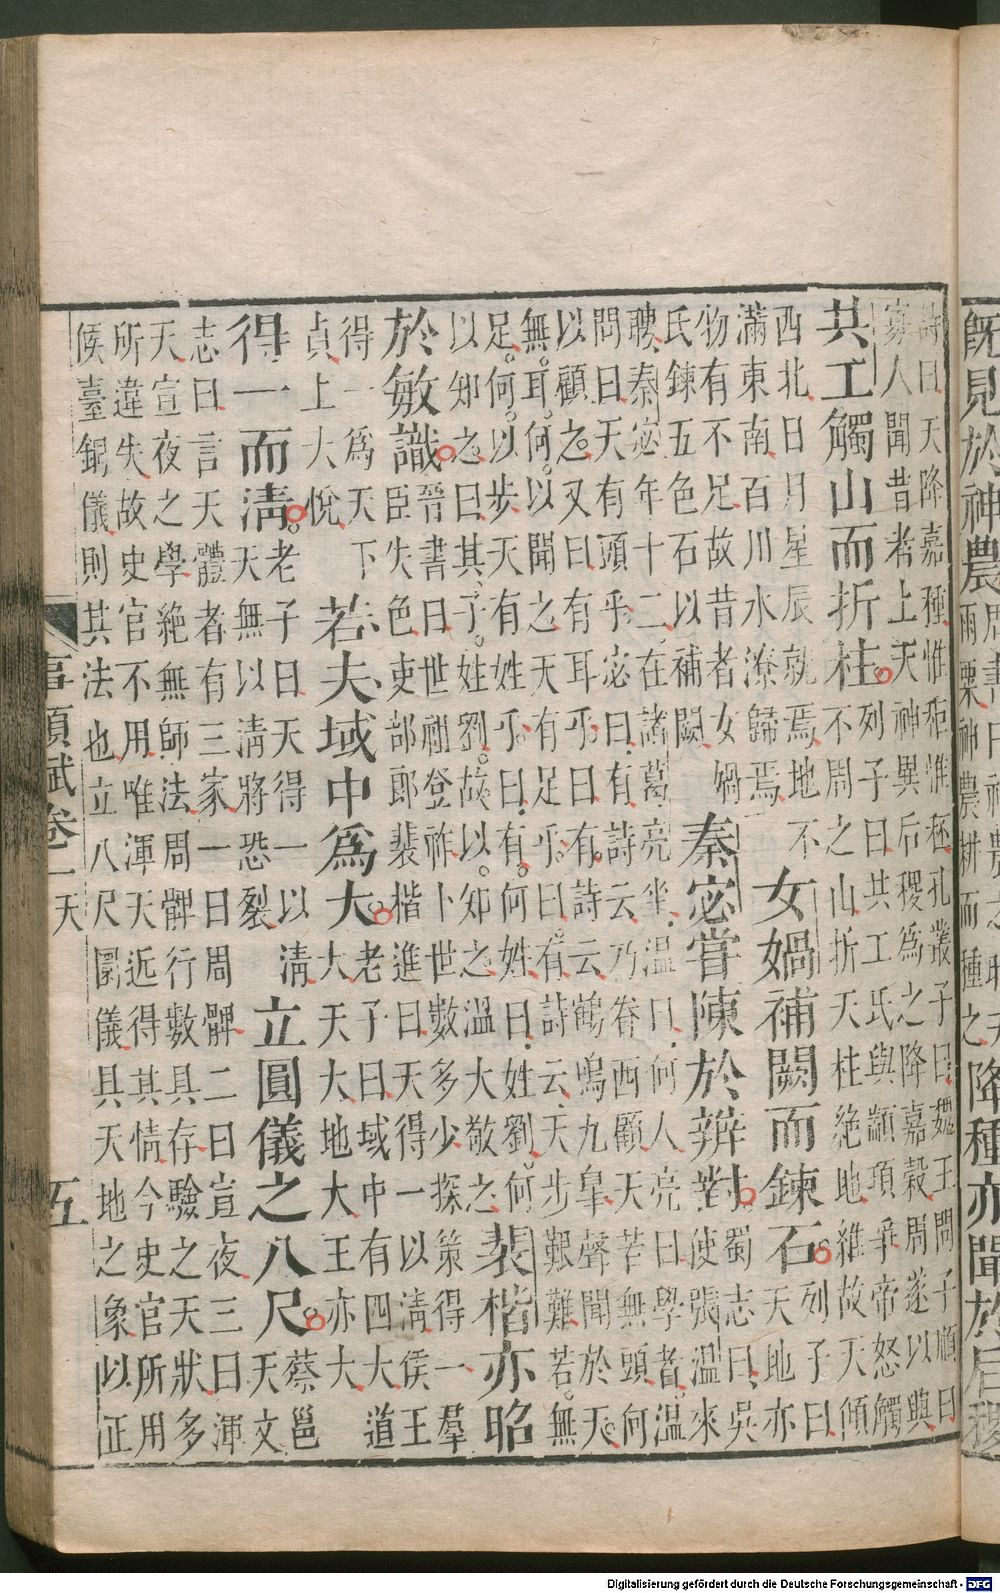 既見於神農
周書曰神農之時天
雨粟神農耕而種之
降種亦聞於后稷
詩曰天降嘉種惟秬惟秠孔叢子曰魏王問子順曰
寡人聞昔者上天神異后稷為之降嘉穀周遂以興
共工觸山而折柱
列子曰共工氏與顓頊爭帝怒觸
不周之山折天柱絕地維故天傾
西北日月星辰就焉地不
滿東南百川水潦歸焉
女媧補闕而鍊石
列子曰
天地亦
物有不足故昔者女媧
氏鍊五色石以補闕
秦宓嘗陳於辨對
蜀志曰吳
使張溫來
聘秦宓年十二在諸葛亮坐溫曰何人亮曰學者溫
問曰天有頭乎宓曰有詩云乃眷西顧天苦無頭何
以顧之又曰有耳乎曰有詩云鶴鳴九臯聲聞於天
無耳何以聞之天有足乎曰有詩云天步艱難若無
足何以步天有姓乎曰有何姓曰姓劉何
以知之曰其子姓劉故以知之溫大敬之
裴楷亦昭
於敏識
晉書曰世祖登祚卜世數多少探策得一羣
臣失色吏部郎裴楷進曰天得一以清侯王
得一為天下
貞上大悅
若夫域中爲大
老子曰域中有四大道
大天大地大王亦大
得一而清
老子曰天得一以清
天無以清將恐裂
立圓儀之八尺
蔡邕
天文
志曰言天體者有三家一曰周髀二曰宣夜三曰渾
天宣夜之學絕無師法周髀行數具存驗之天狀多
所違失故史官不用唯渾天近得其情今史官所用
候臺銅儀則其法也立八尺圓儀具天地之象以正
事類賦卷一 天 五
Digitalisierung gefördert durch die Deutsche Forschungsgemeinschaft - DFG